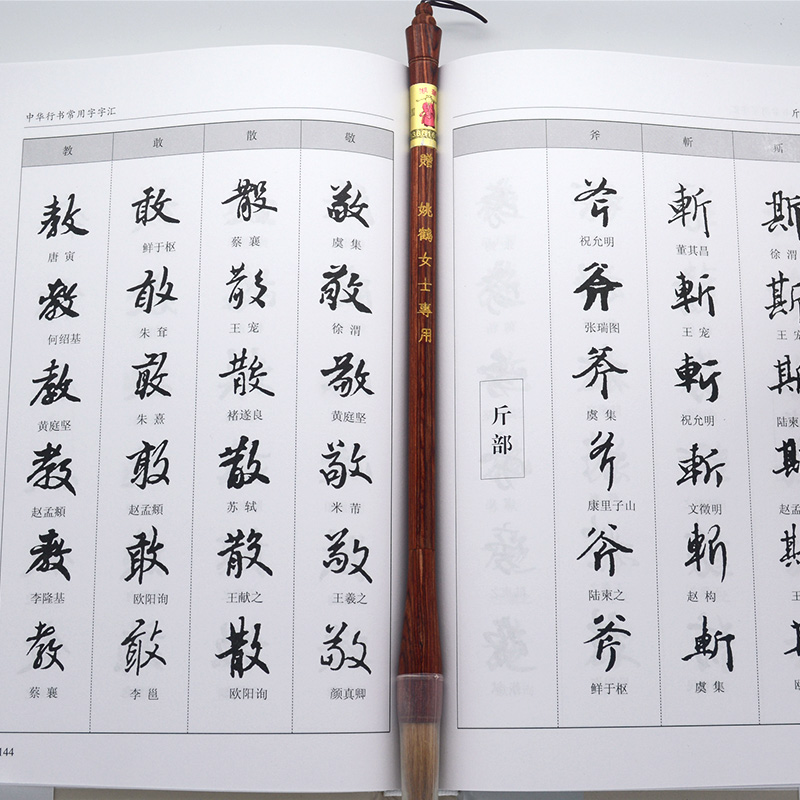 中华行书常用字字汇
教 敢 散 敬
教 敢 散 敬
唐寅 鲜于枢 蔡襄 虞集
教 敢 散 敬
何绍基 朱耷 王宠 徐渭
教 敢 散 敬
黄庭坚 朱熹 褚遂良 黄庭坚
教 敢 散 敬
赵孟頫 赵孟頫 苏轼 米芾
教 敢 散 敬
李隆基 欧阳询 王献之 王羲之
教 敢 散 敬
蔡襄 李邕 欧阳询 颜真卿
144
赠 姚鶴女士專用
斤部
斧 斬 斯
斧 斬 斯
祝允明 董其昌 徐渭
斧 斬 斯
张瑞图 王宠
斧 斬 斯
虞集 祝允明 陆柬
斧 斬 斯
康里子山 文徵明 赵孟
斧 斬
陆柬之 赵构
斧 斬
鲜于枢 虞集